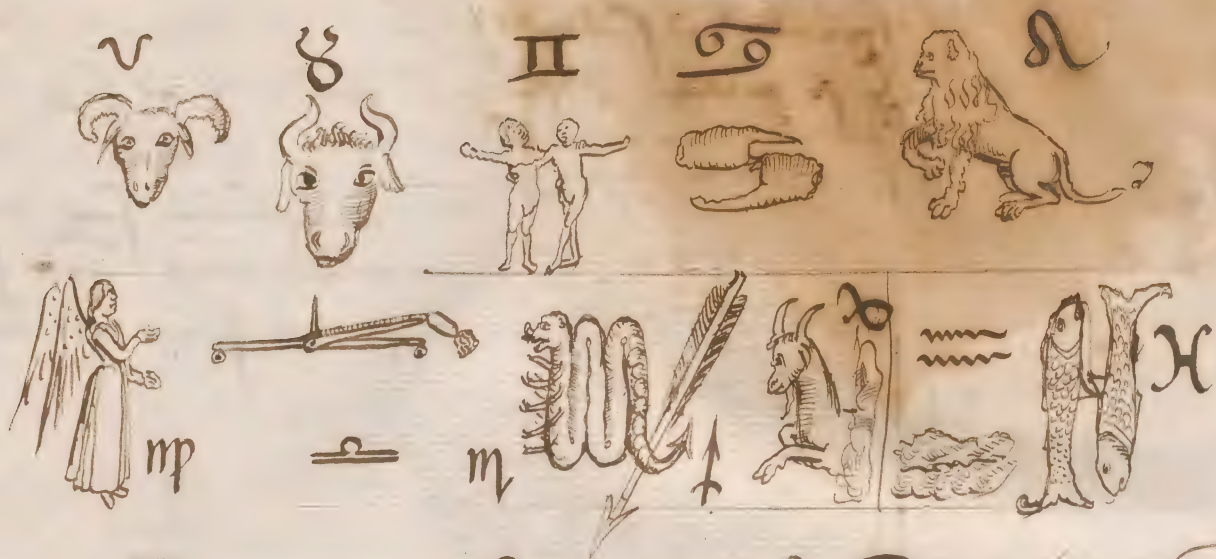 ♈ ♉ ♊ ♋ ♌
♍ ♎ ♏ ♐ ♑ ♒ ♓